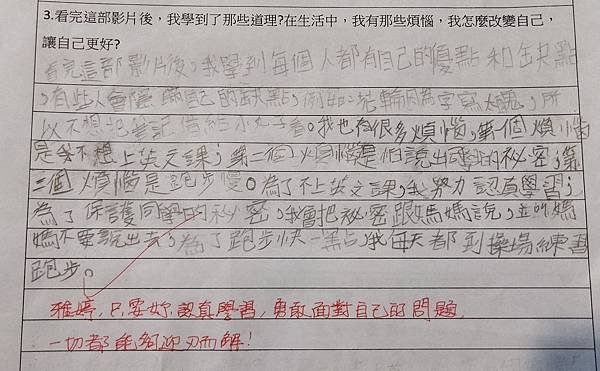 3.看完這部影片後，我學到了那些道理?在生活中，我有那些煩惱，我怎麼改變自己，
讓自己更好?
看完這部影片後，我學到每個人都有自己的優點和缺點
，有些人會隱瞞自己的缺點，例如：花輪因為字寫太醜，所
以不想把筆記借給小丸子看。我也有很多煩惱，第一個煩惱
是我不想上英文課；第二個煩惱是怕說出同學的祕密；第
三個煩惱是跑步慢。為了不上英文課，我努力認真學習；
為了保護同學的祕密，我會把祕密跟媽媽說，並叫媽
媽不要說出去；為了跑步快一點，我每天都到操場練習
跑步。
雅婷，只要妳認真學習，勇敢面對自己的問題，
一切都能夠迎刃而解！